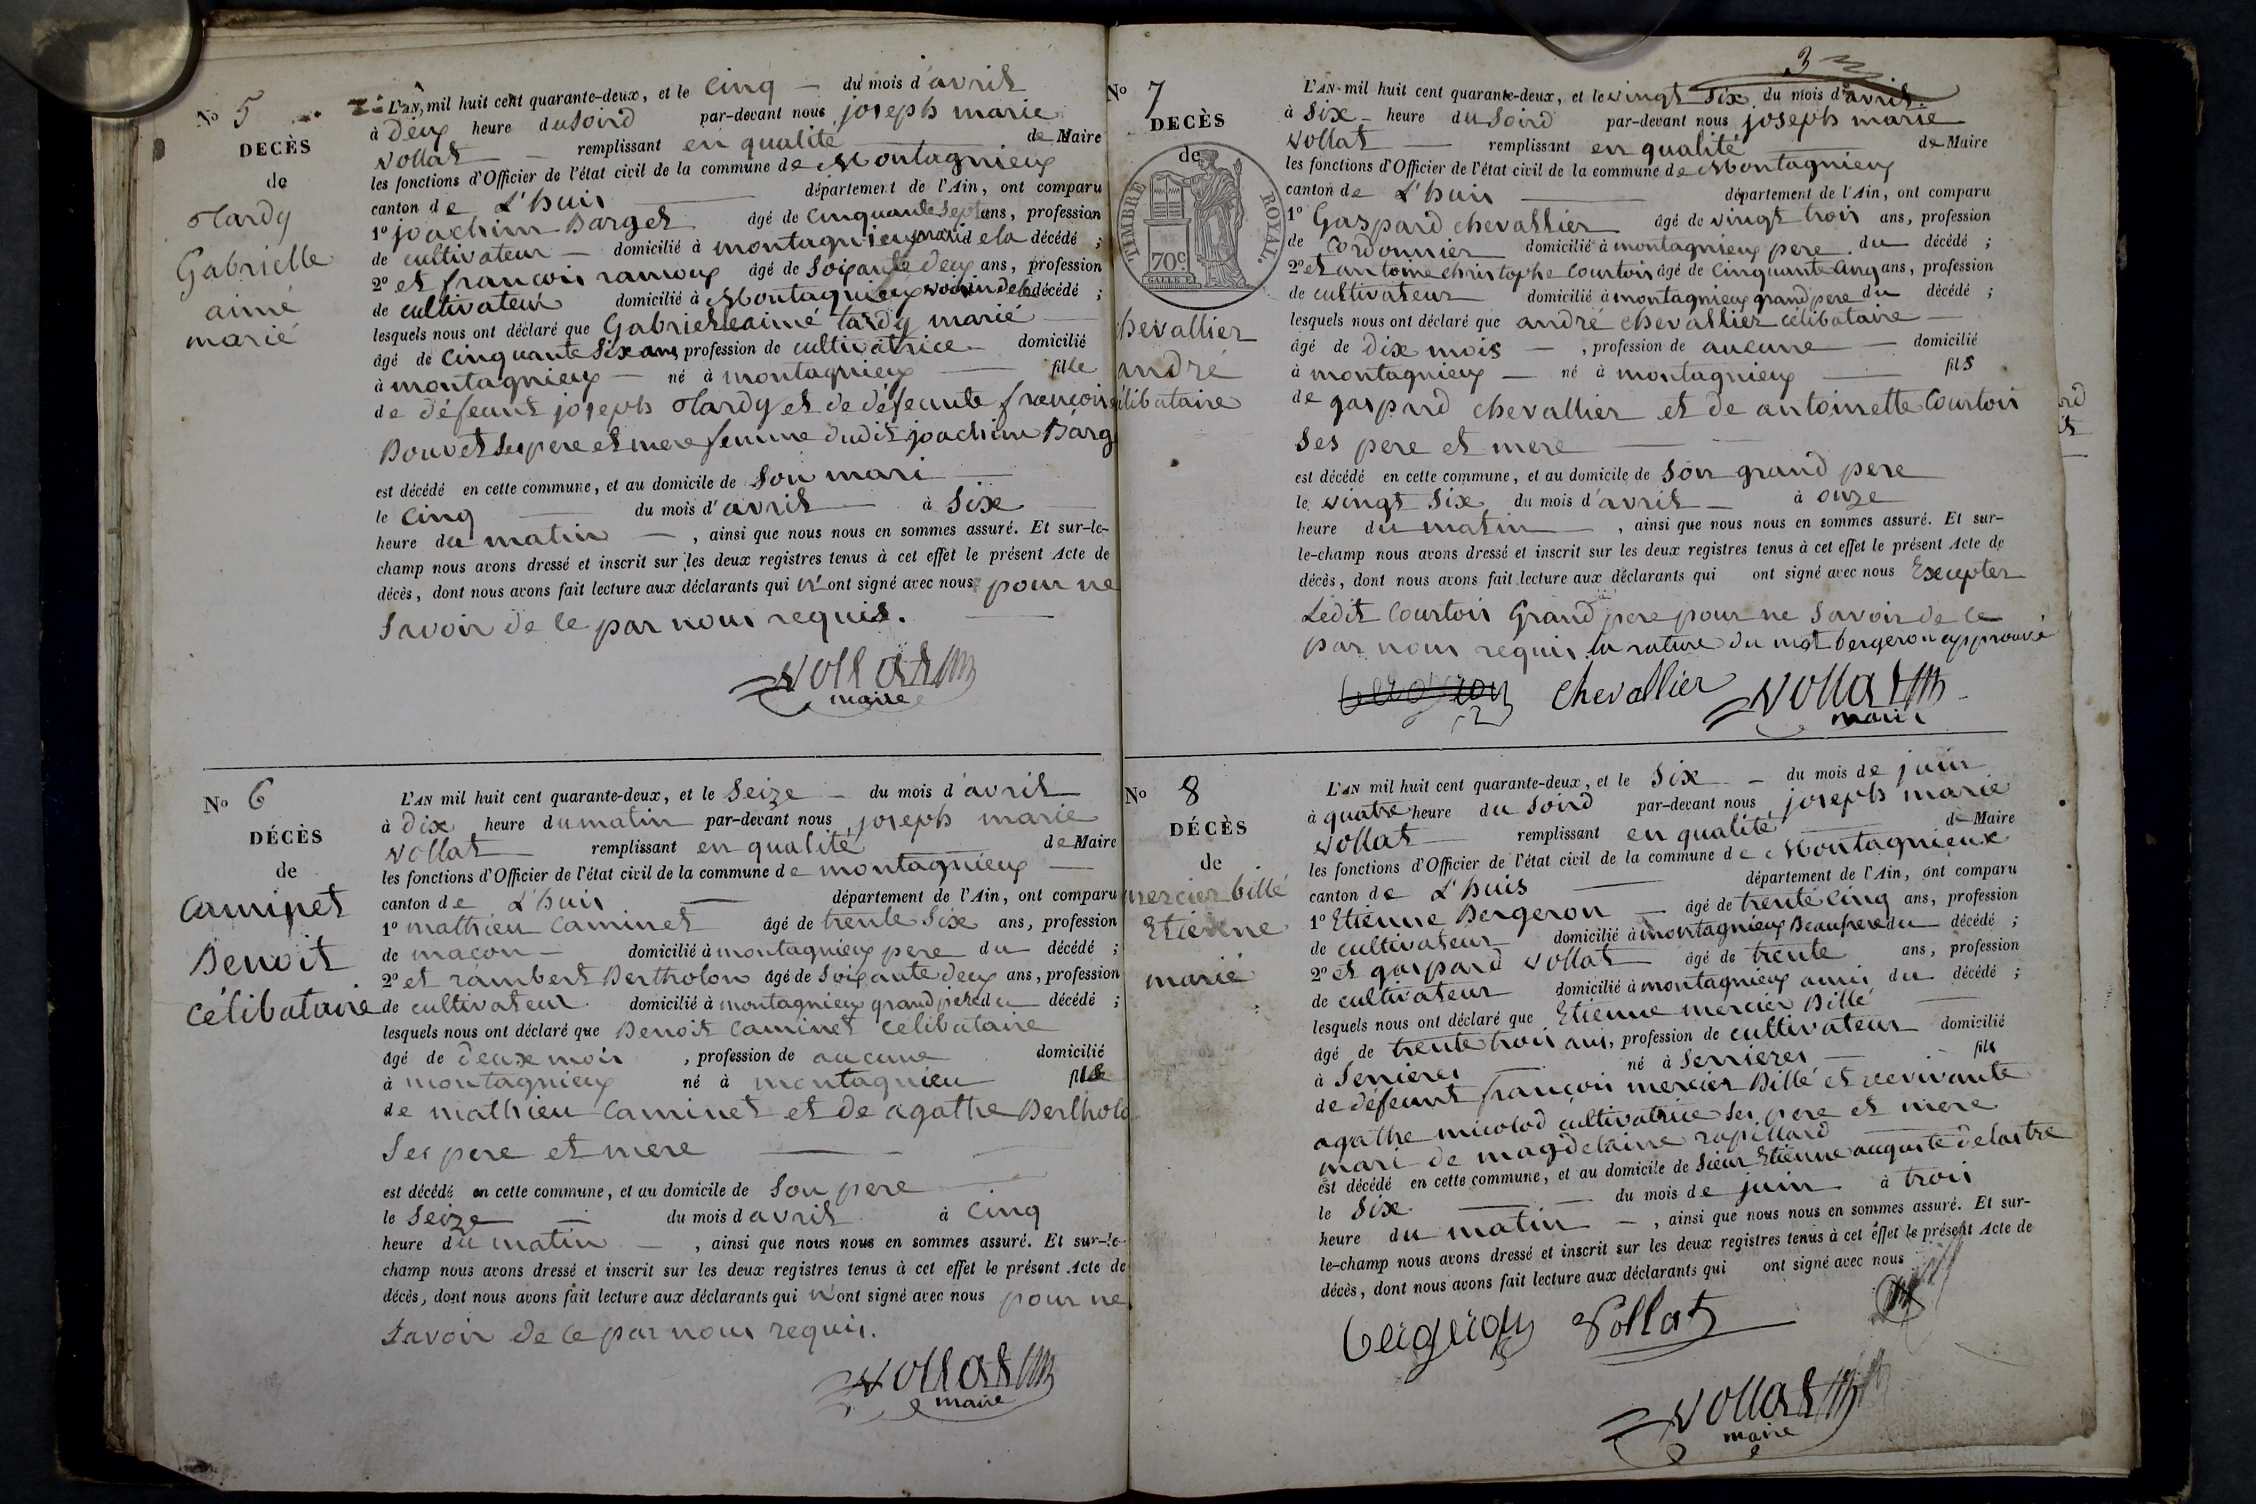 No 5
DECÈS
de
Tardy
Gabrielle
aimé
marié
L'AN, mil huit cent quarante-deux, et le cinq — du mois d'avril
à deux heure du soird par-devant nous joseph marie
vollat — remplissant en qualité de Maire
les fonctions d'Officier de l'état civil de la commune de Montagnieux
canton de L'huis — département de l'Ain, ont comparu
1o joachim Barget âgé de cinquante sept ans, profession
de cultivateur — domicilié à montagnieux marid de la décédé ;
2o et francois ramoux âgé de soixante deux ans, profession
de cultivateur domicilié à Montagnieux voisin de la décédé ;
lesquels nous ont déclaré que Gabrielle aimé tardy marié —
âgé de cinquante six ans profession de cultivatrice — domicilié
à montagnieux — né à montagnieux — fille
de défeunt joseph Tardy et de défeunte françoise
Bouvet ses pere et mere femme dudit joachim Barg
est décédé en cette commune, et au domicile de son mari —
le cinq — du mois d'avril — à six
heure du matin — , ainsi que nous nous en sommes assuré. Et sur-le-
champ nous avons dressé et inscrit sur les deux registres tenus à cet effet le présent Acte de
décès, dont nous avons fait lecture aux déclarants qui n'ont signé avec nous pour ne
savoir de ce par nous requis. —
vollat
maire
No 6
DÉCÈS
de
Caminet
Benoit
célibataire
L'AN mil huit cent quarante-deux, et le seize — du mois d'avril
à dix heure du matin par-devant nous joseph marie
vollat — remplissant en qualité de Maire
les fonctions d'Officier de l'état civil de la commune de montagnieux —
canton de L'huis — département de l'Ain, ont comparu
1o mathieu caminet âgé de trente six ans, profession
de macon — domicilié à montagnieux pere du décédé ;
2o et rambert Bertholon âgé de soixante deux ans, profession
de cultivateur domicilié à montagnieux grand pere du décédé ;
lesquels nous ont déclaré que Benoit caminet célibataire
âgé de deux mois , profession de aucune domicilié
à montagnieux né à montagnieu fils
de mathieu caminet et de agathe Berthold
ses pere et mere —
est décédé en cette commune, et au domicile de son pere —
le seize — du mois d'avril à cinq
heure du matin — , ainsi que nous nous en sommes assuré. Et sur-le-
champ nous avons dressé et inscrit sur les deux registres tenus à cet effet le présent Acte de
décès, dont nous avons fait lecture aux déclarants qui n'ont signé avec nous pour ne
savoir de ce par nous requis.
vollat
maire
3
No 7
DECÈS
de
TIMBRE ROYAL.
70c.
chevallier
andré
célibataire
L'AN mil huit cent quarante-deux, et le vingt six du mois d'avril.
à six heure du soird par-devant nous joseph marie
vollat — remplissant en qualité de Maire
les fonctions d'Officier de l'état civil de la commune de Montagnieux
canton de L'huis — département de l'Ain, ont comparu
1o Gaspard chevallier âgé de vingt trois ans, profession
de cordonnier domicilié à montagnieux pere du décédé ;
2o et antoine christophe courtois âgé de cinquante cinq ans, profession
de cultivateur domicilié à montagnieux grand pere du décédé ;
lesquels nous ont déclaré que andré chevallier célibataire —
âgé de dix mois — , profession de aucune — domicilié
à montagnieux — né à montagnieux — fils
de gaspard chevallier et de antoinette courtois
ses pere et mere —
est décédé en cette commune, et au domicile de son grand pere
le vingt six du mois d'avril — à onze
heure du matin — , ainsi que nous nous en sommes assuré. Et sur-
le-champ nous avons dressé et inscrit sur les deux registres tenus à cet effet le présent Acte de
décès, dont nous avons fait lecture aux déclarants qui ont signé avec nous Excepter
Ledit courtois Grand pere pour ne savoir de ce
par nous requis. la rature du mot bergeron approuvé
bergeron chevallier vollat
maire
No 8
DÉCÈS
de
mercier billé
Etienne
marié
L'AN mil huit cent quarante-deux, et le six — du mois de juin
à quatre heure du soird par-devant nous joseph marie
vollat — remplissant en qualité de Maire
les fonctions d'Officier de l'état civil de la commune de Montagnieux
canton de L'huis — département de l'Ain, ont comparu
1o Etienne Bergeron — âgé de trente cinq ans, profession
de cultivateur domicilié à montagnieux Beaufrere du décédé ;
2o et gaspard vollat âgé de trente ans, profession
de cultivateur domicilié à montagnieux ami du décédé ;
lesquels nous ont déclaré que Etienne mercier Billé —
âgé de trente trois ans, profession de cultivateur domicilié
à Serrieres né à Serrieres — fils
de défeunt françois mercier Billé et de vivante
agathe micolod cultivatrice ses pere et mere
mari de magdelaine rapillard —
est décédé en cette commune, et au domicile de Sieur Etienne auguste delastre
le six — du mois de juin à trois
heure du matin — , ainsi que nous nous en sommes assuré. Et sur-
le-champ nous avons dressé et inscrit sur les deux registres tenus à cet effet le présent Acte de
décès, dont nous avons fait lecture aux déclarants qui ont signé avec nous
bergeron Vollat
vollat
maire